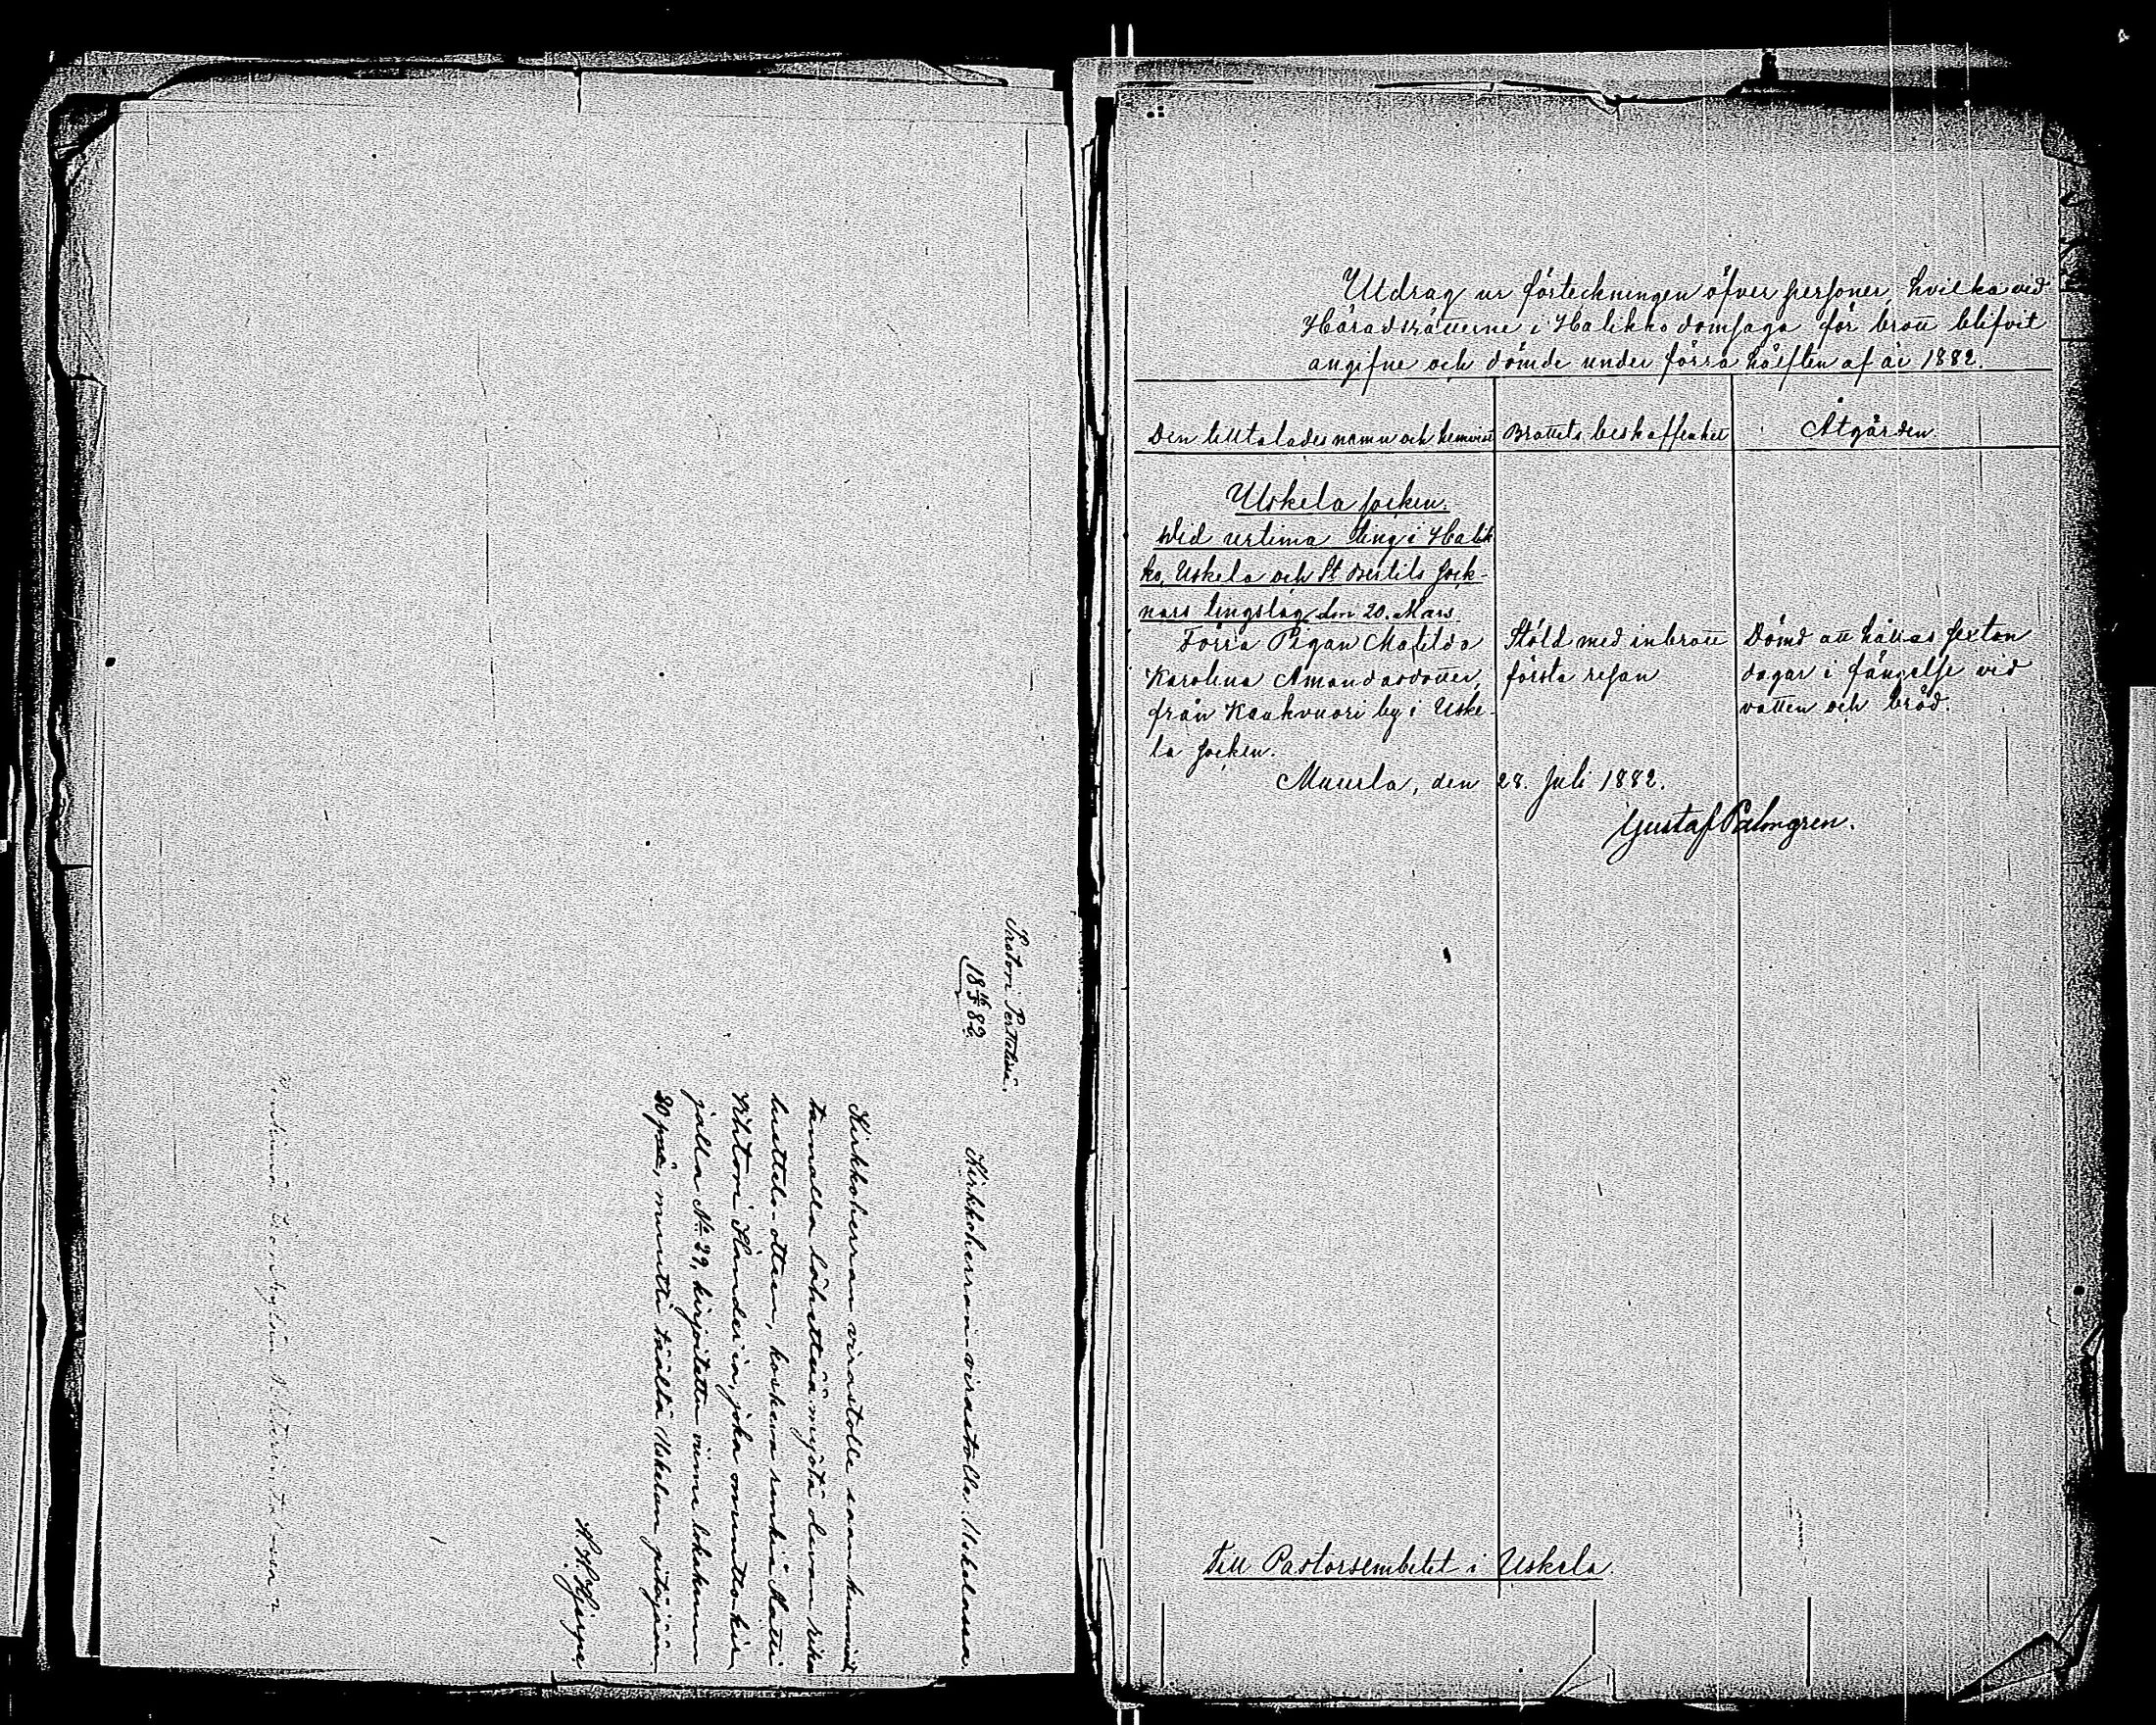 Pastori Perttelissä.
18 82.
Kirkkoherran-virastolle Uskelassa
Kirkkoherran virastolle saan kunnioit
tamalla lähettää myötä olevan rikos
luettelo-otteen, koskeva renkiä Matti
Vihtori Kanderia, joka on muutto-kir
jalla No 29, kirjoitettu viime lokakuun
20 p:nä, muutti täältä Uskelan pitäjään.
Utdrag ur förteckningen öfver personer, hvilka vid
Häradsrätterne i Halikko domsaga för brott blifvit
angifne och dömde under förra hälften af år 1882.
Den tilltalades namn och hemvist
Brottets beskaffenhet
Åtgärden.
Uskela socken.
Wid urtima ting i Halik
ko, Uskela och St Bertils sock-
nars tingslag den 20. Mars.
Förra Pigan Matilda
Karolina Amandasdotter,
från Kaukvuori by i Uske-
la socken.
Stöld med inbrott
första resan
Dömd att hållas sexton
dagar i fängelse vid
vatten och bröd.
Muurla, den 28. Juli 1882.
Gustaf Palmgren.
Till Pastorsembetet i Uskela.